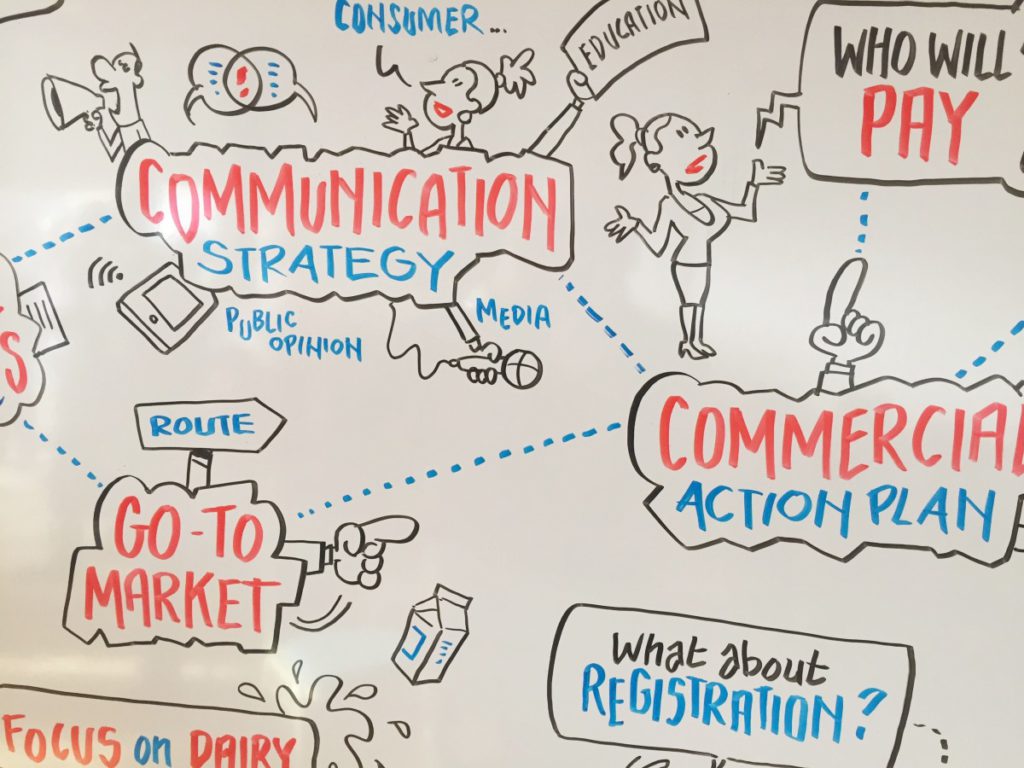 CONSUMER...
EDUCATION
WHO WILL
PAY
COMMUNICATION
STRATEGY
PUBLIC
OPINION
MEDIA
ROUTE
GO-TO
MARKET
COMMERCIAL
ACTION PLAN
What about
REGISTRATION?
FOCUS on DAIRY